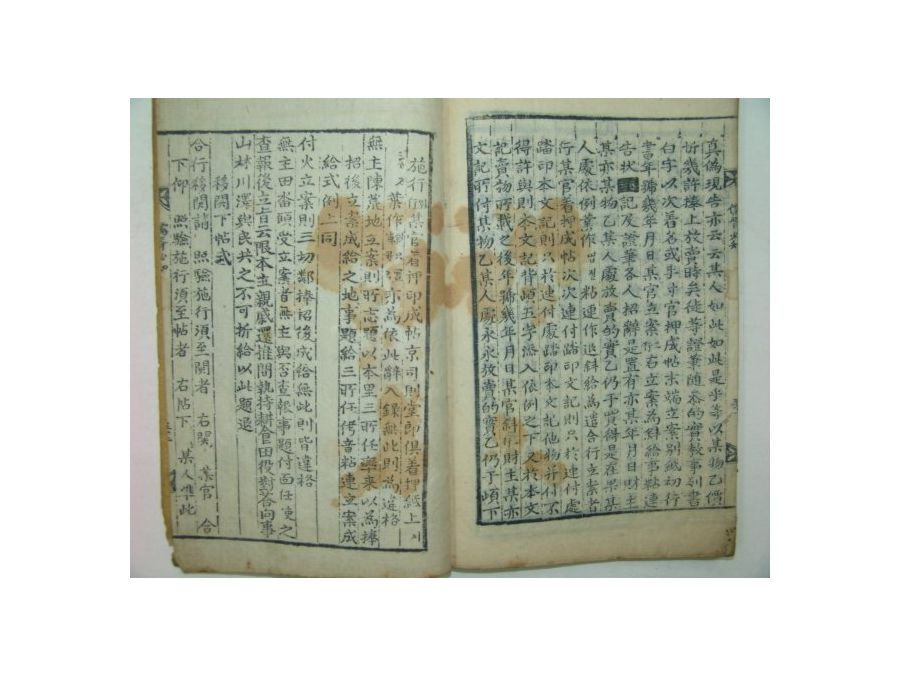 真偽現告亦云云其人如此如此是乎等以某物乙價
折幾許捧上放賣時矣徒等證筆隨參的實敎事列書
白字以次着名或手寸官押成帖末端立案別紙初行
當年號幾年月日某官立案右立案爲斜給事粘連
告狀記及證筆各人招辭是置有亦某年月日財主
某亦某物乙某人處放賣的實乙仍于買得是在果某
人處依例業作 粘連作退斜給爲遣合行立案者
行某官着押成帖次次連付踏印文記則只於連付處
踏印本文記則只於連付處踏印本文記他物并付不
得許與則本文記背頉五字添入依例之下又於本文
記賣物所載之後年號幾年月日某官斜斤財主某亦
文記所付某物乙某人處永永放賣的實乙仍于頉下
施行行某官着押印成帖京司則堂郎俱着押紙上
葉作 亦爲依此辭入錄無此則爲違格
無主陳荒地立案則所志題以本里三所任率來以爲捧
招後立案成給之地事題給三所任侤音粘連立案成
給式例上同
付火立案則三切鄰捧招後成給無此則皆違格
無主田畓頭受立案者無主與否查報事題付面任使之
查報後立旨云限本主親戚還推間執持耕食田役對答向事
山林川澤與民共之不可折給以此題退
移關下帖式
合行移關請 照驗施行須至關者 右關 某官 合
下仰 照驗施行須至帖者 右帖下 某人準此